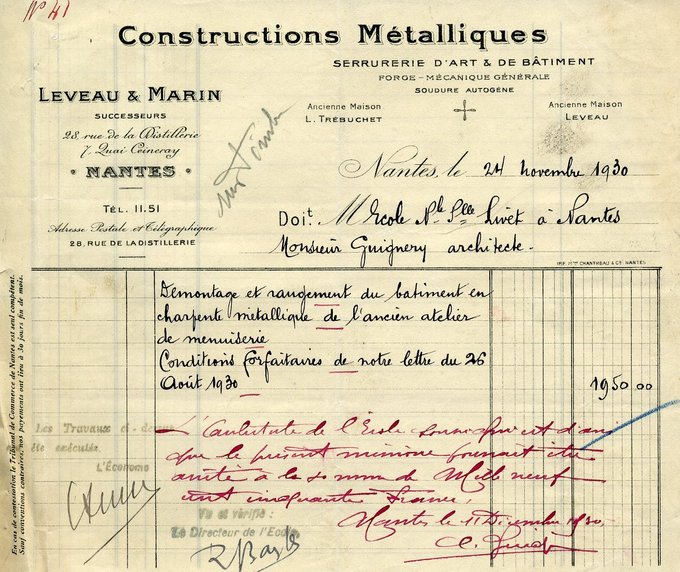 Nº 41
Constructions Métalliques
SERRURERIE D'ART & DE BÂTIMENT
FORGE - MÉCANIQUE GÉNÉRALE
SOUDURE AUTOGÈNE
LEVEAU & MARIN
SUCCESSEURS
28, rue de la Distillerie
7, Quai Ceineray
NANTES
TÉL. 11.51
Adresse Postale et Télégraphique
28, RUE DE LA DISTILLERIE
Ancienne Maison
L. TRÉBUCHET
Ancienne Maison
LEVEAU
Nantes, le 24 novembre 1930
Doit M Ecole Nle Plle Livet à Nantes
Monsieur Guignery architecte.
IMP. CHANTREAU & Cie. NANTES
Démontage et rangement du bâtiment en
charpente métallique de l'ancien atelier
de menuiserie
Conditions forfaitaires de notre lettre du 26
Août 1930
1950 00
En cas de contestation, le Tribunal de Commerce de Nantes est seul compétent.
Sauf conventions contraires, nos payements ont lieu à 30 jours fin de mois.
Les Travaux ci-dessus
été exécutés
L'Économe
L'architecte de l'École soussigné est d'avis
que le présent mémoire pourrait être
arrêté à la somme de Mille neuf
cent cinquante francs.
Nantes le 11 Décembre 1930
Vu et vérifié :
Le Directeur de l'Ecole